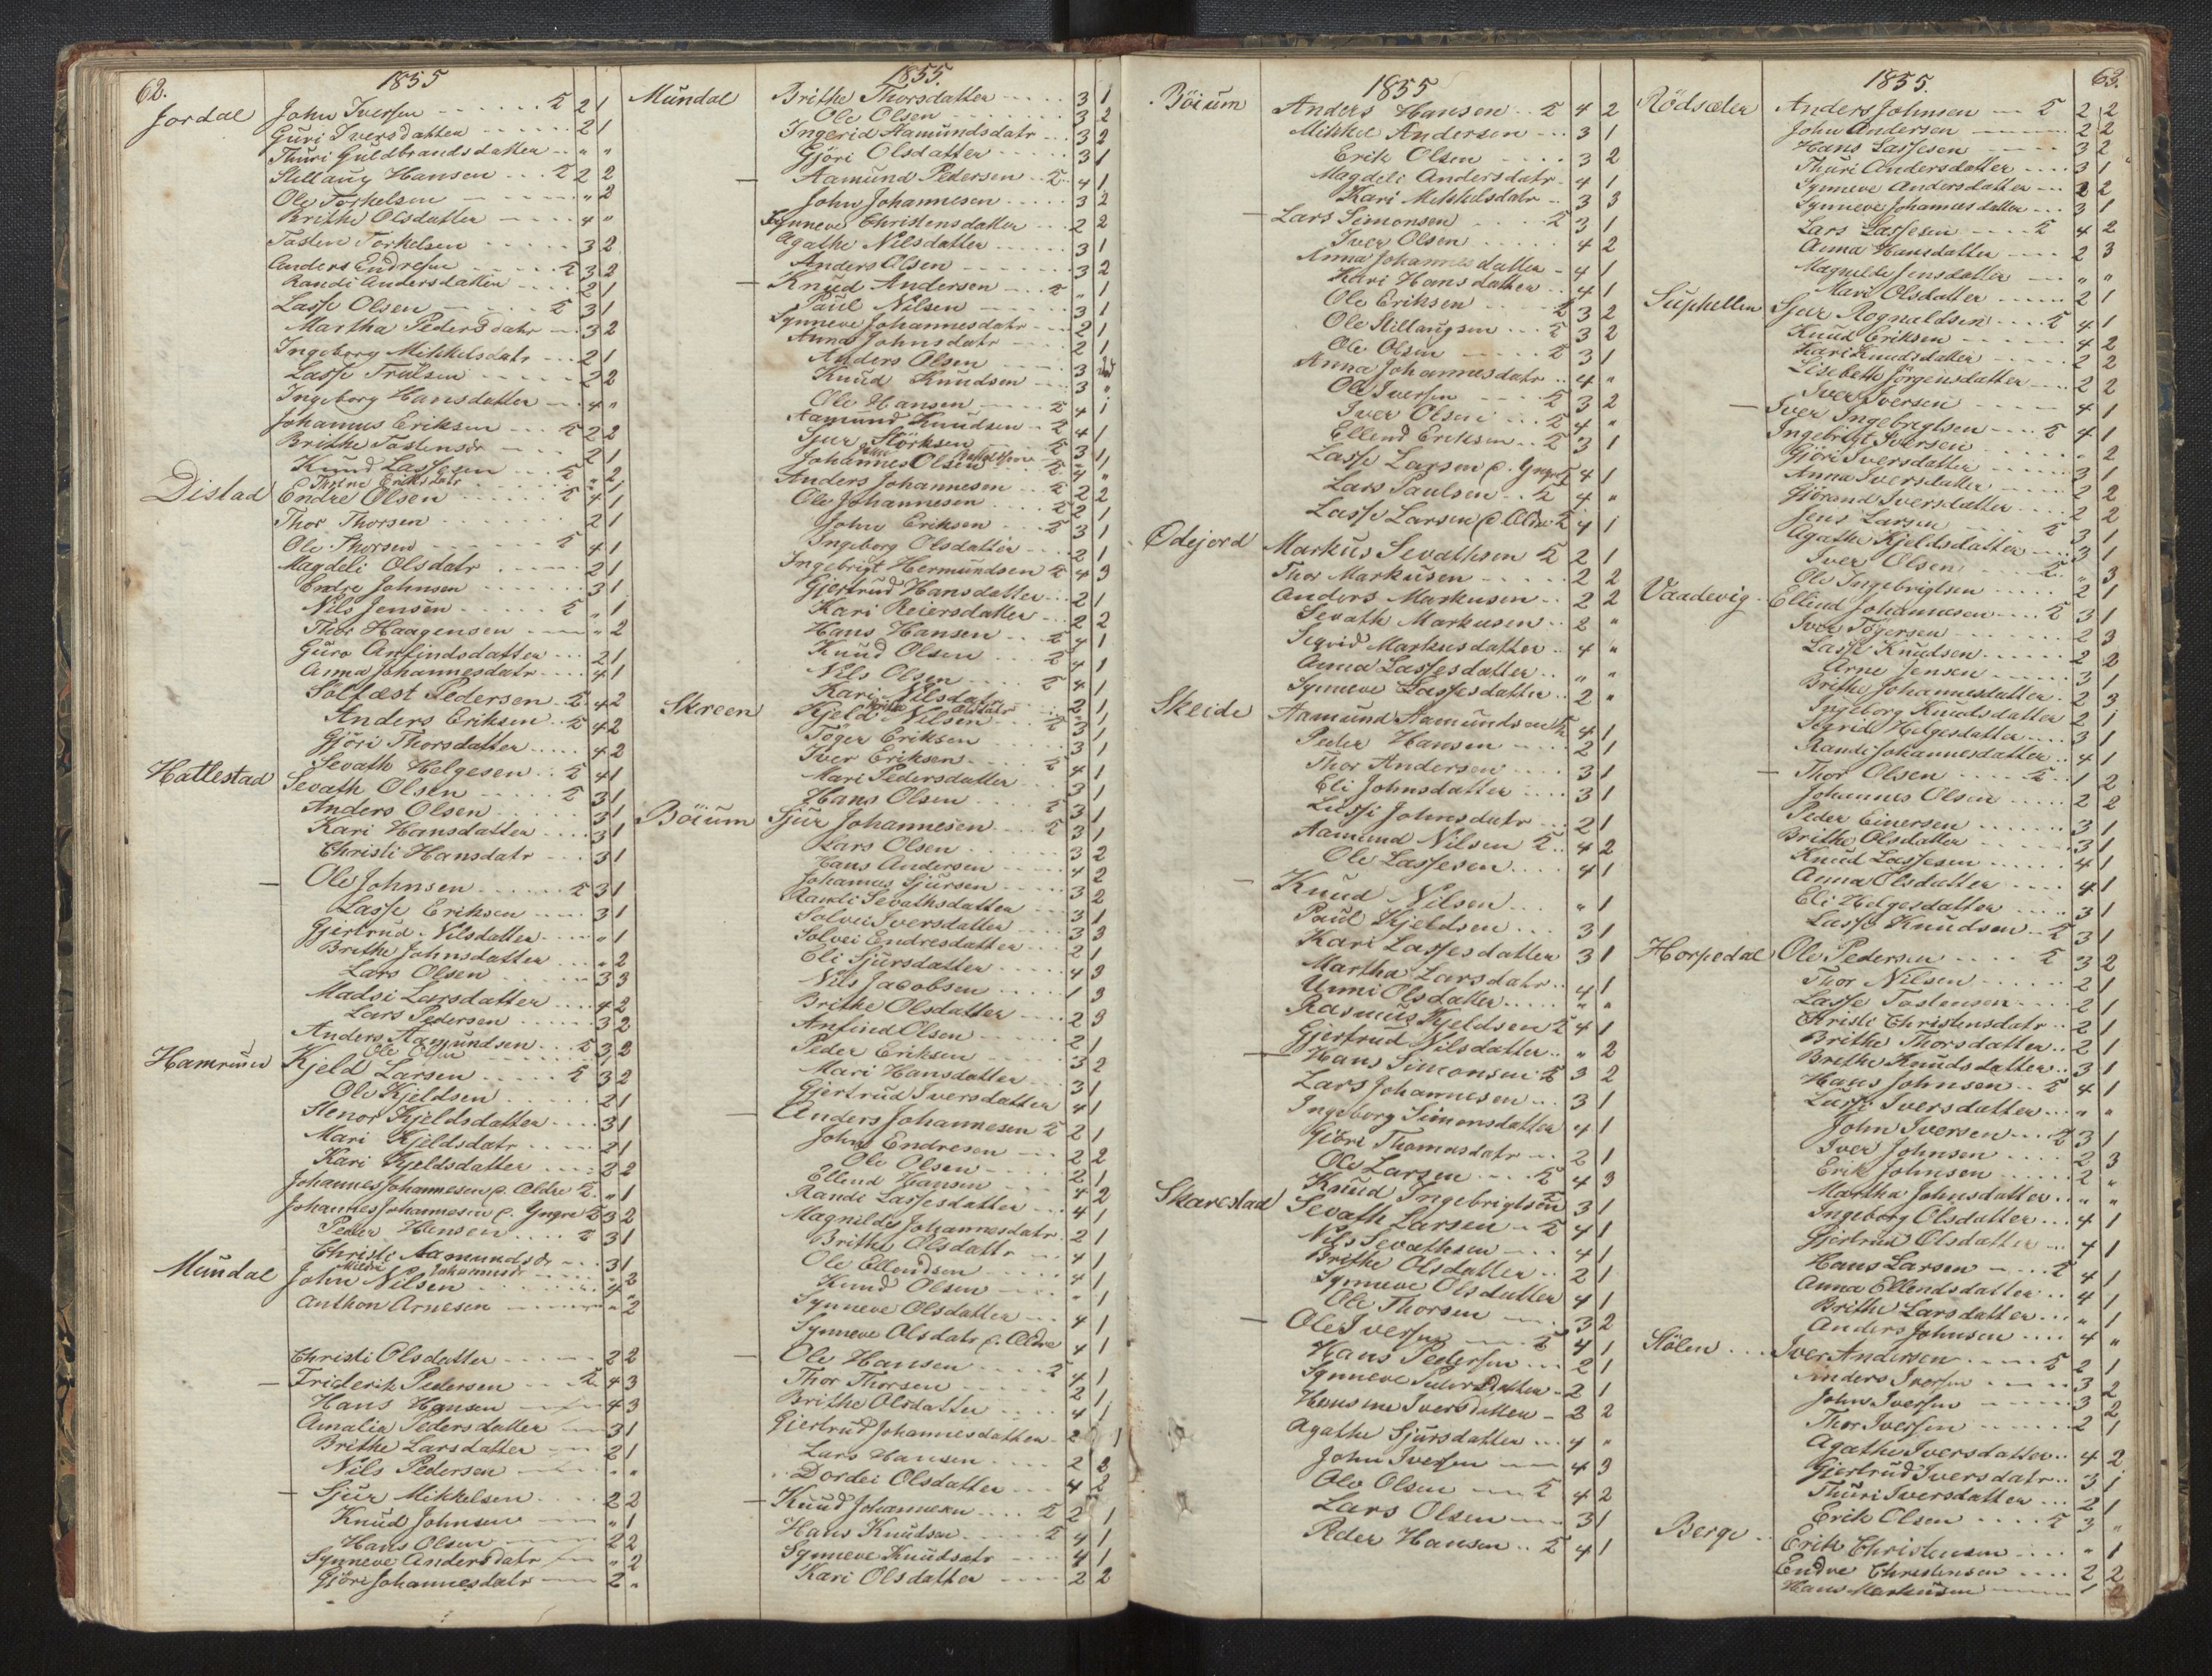 62.
1855
Jordal John Iversen 2 1
Guri Iversdatter 2 1
Thuri Guldbrandsdatter " "
Stillaug Hansen 2 2
Ole Torkelsen " 2
Brithe Olsdatter 4 "
Tosten Torkelsen 3 2
Anders Endresen 3 2
Randi Andersdatter 2 1
Lasse Olsen 3 1
Martha Pedersdatr 3 2
Ingeborg Mikkelsdatr 2 1
Lasse Trulsen 2 2
Ingeborg Hansdatter 4 "
Johannes Eriksen 2 2
Brithe Tostensdr 2 1
Knud Lassesen " 2
Eriksdatr " 1
Distad Endre Olsen 4 1
Thor Thorsen 2 1
Ole Thorsen 4 1
Magdeli Olsdatr 2 1
Endre Johnsen 3 1
Nils Jensen " 1
Thor Haagensen " 2
Guro Anfindsdatter 2 1
Anna Johannesdatr 4 1
Solfæst Pedersen 4 2
Anders Eriksen 4 2
Gjöri Thorsdatter 4 2
Sevath Helgesen 4 1
Hatlestad Sevath Olsen 3 1
Anders Olsen 3 1
Kari Hansdatter 3 1
Christi Hansdatr 3 1
– Ole Johnsen 3 1
Lasse Eriksen 3 1
Gjertrud Nilsdatter " 1
Brithe Johnsdatter " 2
Lars Olsen 3 3
Madsi Larsdatter 4 2
Lars Pedersen 3 2
Anders Aamundsen 3 2
Ole Olsen
Kjeld Larsen 3 2
Ole Kjeldsen 2 1
Stenor Kjeldsdatter 3 1
Mari Kjeldsdatr 2 1
Kari Kjeldsdatter 3 2
Johannes Johannesen d. Ældre " 1
Johannes Johannesen d. Yngre 3 2
Peder Hansen 3 1
Christi Aamundsdr 3 1
Johannesdr
Mundal John Nilsen 4 "
Anthon Arnesen " 2
Christi Olsdatter 2 2
– Friderik Pedersen 4 3
Hans Hansen 4 3
Amalia Pedersdatter 3 1
Brithe Larsdatter 2 1
Nils Pedersen " "
– Sjur Mikkelsen 2 2
Knud Johnsen " 1
Hans Olsen 2 2
Synneve Andersdatr " 2
Gjöri Johannesdatr 2 "
1855.
Mundal Brithe Thorsdatter 3 1
Ole Olsen 3 2
Ingerid Aamundsdatr 3 2
Gjöri Olsdatter 3 1
– Aamund Pedersen 4 1
John Johannesen 3 2
Synneve Christensdatter 2 2
Agathe Nilsdatter 3 1
Anders Olsen 3 2
– Knud Andersen " 1
Paul Nilsen 3 1
Synneve Johannesdatr 2 1
Anna Johnsdatr 2 1
Anders Olsen 3
Knud Knudsen 3 "
Ole Hansen 4 1
Aamund Knudsen 4 1
Sjur Störksen 3 1
Johannes Olsen 4 "
Anders Johannesen 2 2
Ole Johannesen 2 1
John Eriksen 3 1
Ingeborg Olsdatter 2 1
Ingebrigt Hermundsen 4 3
Gjertrud Hansdatter 2 1
Kari Reiersdatter 2 2
Hans Hansen 4 1
Knud Olsen 4 1
Nils Olsen 4 1
Kari Nilsdatr 2 1
Olsdatr
Skreen Kjeld Nilsen 3 1
Töger Eriksen 3 1
Iver Eriksen 4 1
Mari Pedersdatter 3 1
Hans Olsen 3 1
Böium Sjur Johannesen 3 1
Lars Olsen 3 2
Hans Andersen 4 2
Johannes Sjursen 3 2
Randi Sevathsdatter 3 1
Solvei Iversdatter 3 3
Solvei Endresdatter 2 1
Eli Sjursdatter 4 3
Nils Jacobsen 1 3
Brithe Olsdatter 2 3
Anfind Olsen 2 1
Peder Eriksen 3 2
Mari Hansdatter 3 1
Gjertrud Iversdatter 4 1
– Anders Johannesen 2 1
John Endresen 2 2
Ole Olsen 2 1
Ellend Hansen 4 2
Randi Lassesdatter 4 1
Magnilde Johannesdatr 2 1
Brithe Olsdattr 4 1
Ole Ellendsen 4 1
Knud Olsen " 1
Synneve Olsdatter 4 1
Synneve Olsdatr d. Ældre 4 1
– Ole Hansen 4 1
Thor Thorsen 2 1
Brithe Olsdatter 4 1
Gjertrud Johannesdatter 2 1
Lars Hansen 2 2
Dordei Olsdatter 4 2
– Knud Johannesen 2 1
Hans Knudsen 4 1
Synneve Knudsdtr 4 1
Kari Olsdatter 2 2
1855
Böium Anders Hansen 4 2
Mikkel Andersen 3 1
Erik Olsen 3 2
Magdeli Andersdatr 4 1
Kari Mikkelsdatr 3 3
– Lars Simonsen 3 1
Iver Olsen 4 2
Anna Johannesdatter 4 1
Kari Hansdatter 4 1
Ole Eriksen 3 2
Ole Stillaugsen 3 2
Ole Olsen 3 1
Anna Johannesdatr 4 "
Ole Iversen 3 2
Iver Olsen 4 "
Ellend Eriksen 3 1
Lasse Larsen d. Yngre 4 1
Lars Paulsen 4 "
Lasse Larsen d. Ældre 4 1
Ödejord Markus Sevathsen 2 1
Thor Markusen 2 2
Anders Markusen 2 2
Sevath Markusen 2 "
Sigrid Markusdatter 4 "
Anna Lassesdatter " "
Synneve Lassesdatter 2 "
Skeide Aamund Aamundsen 4 1
Peder Hansen 2 1
Thor Andersen 3 1
Eli Johnsdatter 3 1
Lussi Johnsdatr 2 1
Aamund Nilsen 4 2
Ole Lassesen 4 1
– Knud Nilsen " 1
Paul Kjeldsen 3 1
Kari Lassesdatter 3 1
Martha Larsdatr 4 1
Unni Olsdatter " "
Rasmus Kjeldsen 4 1
Gjertrud Nilsdatter " 2
– Hans Simonsen 3 2
Lars Johannesen 3 1
Ingeborg Simonsdatter 4 1
Gjöri Thomasdatr 2 1
Ole Larsen 4 3
Knud Ingebrigtsen 3 1
Skarestad Sevath Larsen 4 1
Nils Sevathsen 4 1
Brithe Olsdatter 2 1
Synneve Olsdatter 4 1
Ole Thorsen 3 2
– Ole Iversen 4 1
Hans Pedersen 2 1
Synneve Pedersdatter 2 1
Hansine Iversdatter 2 2
Agathe Sjursdatter 4 "
John Iversen 4 3
Ole Olsen 4 2
Lars Olsen 3 1
Peder Hansen 4 1
1855.
63.
Rödsæter Anders Johnsen 2 2
John Andersen 2 2
Hans Lassesen 3 2
Thuri Andersdatter 3 1
Synneve Andersdatter 2 2
Synneve Johannesdatter 3 1
Lars Lassesen 4 2
Anna Hansdatter 2 3
Magnilde Jensdatter " "
Mari Olsdatter 2 1
Suphellen Sjur Rognaldsen 4 1
Knud Eriksen 4 2
Kari Knudsdatter 2 2
Lisebeth Jörgensdatter 2 2
Iver Iversen 4 1
– Iver Ingebrigtsen 4 1
Ingebrigt Iversen " 2
Gjöri Iversdatter 3 1
Anna Iversdatter 2 2
Gjörand Iversdatter 2 2
Jens Larsen 3 1
Agathe Kjeldsdatter 3 1
Iver Olsen " 3
Ole Ingebrigtsen 2 1
Vaadevig Ellend Johannesen 3 1
Iver Tögersen 2 3
Lasse Knudsen 2 2
Arne Jensen 3 1
Brithe Johannesdatter 2 3
Ingeborg Knudsdatter 2 1
Segrid Helgesdatter 3 1
Randi Johannesdatter 4 1
– Thor Olsen 1 2
Johannes Olsen 2 2
Peder Einersen 3 1
Brithe Olsdatter 3 1
Knud Lassesen 4 1
Anna Olsdatter 4 1
Eli Helgesdatter 3 1
Lasse Knudsen 3 1
Horpedal Ole Pedersen 3 2
Thor Nilsen 2 1
Lasse Tostensen 2 1
Christi Christensdatr 2 1
Brithe Thorsdatter 2 1
Brithe Knudsdatter 3 1
Hans Johnsen 4 1
Lussi Iversdatter " "
John Iversen 3 1
Iver Johnsen 2 3
Erik Johnsen 2 "
Martha Johnsdatter " "
Ingeborg Olsdatter 4 1
Gjertrud Olsdatter 4 1
Hans Larsen 4 1
Anna Ellendsdatter 4 1
Brithe Larsdatter " 1
Anders Johnsen 4 "
Stölen Iver Andersen 2 1
Anders Iversen 3 2
John Iversen 3 2
Thor Iversen 2 1
Agathe Iversdatter 4 2
Gjertrud Iversdatr 3 1
Thuri Iversdatter 2 1
Erik Olsen 3 "
Berge Erik Christensen " 1
Endre Christensen 2 2
Hans Markusen 1